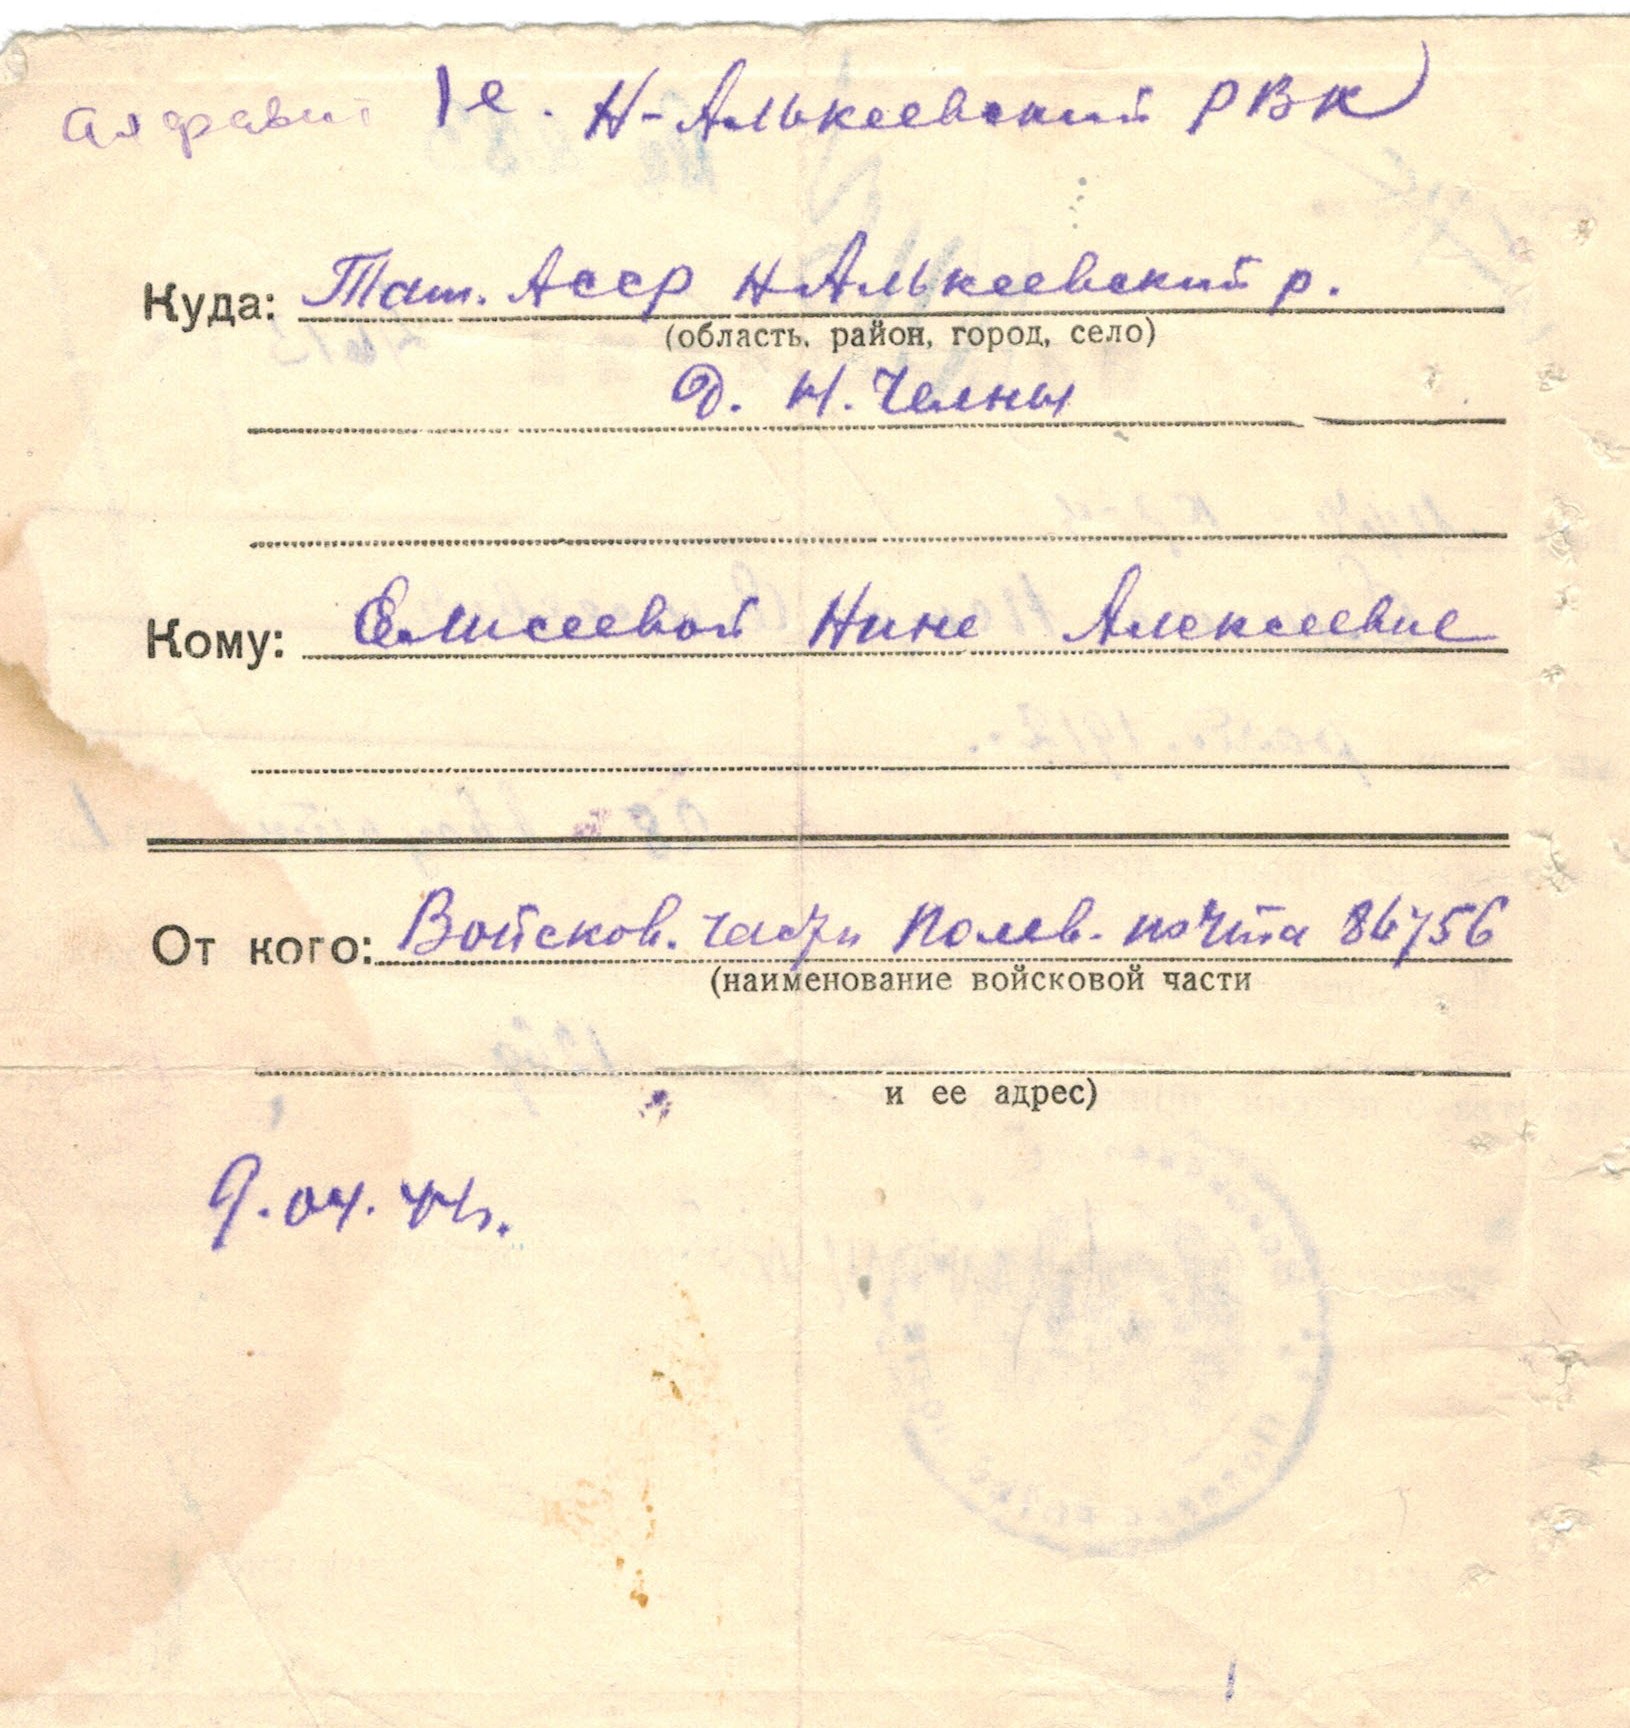 алфавит 1е. Н-Алькеевский РВК
Куда: Тат. Асср Н Алькеевский р.
(область, район, город, село)
д. Н. Челны
Кому: Елисеевой Нине Алексеевне
От кого: Войсков. части Полев. почта
(наименование войсковой части
и ее адрес)
9.04.44г.